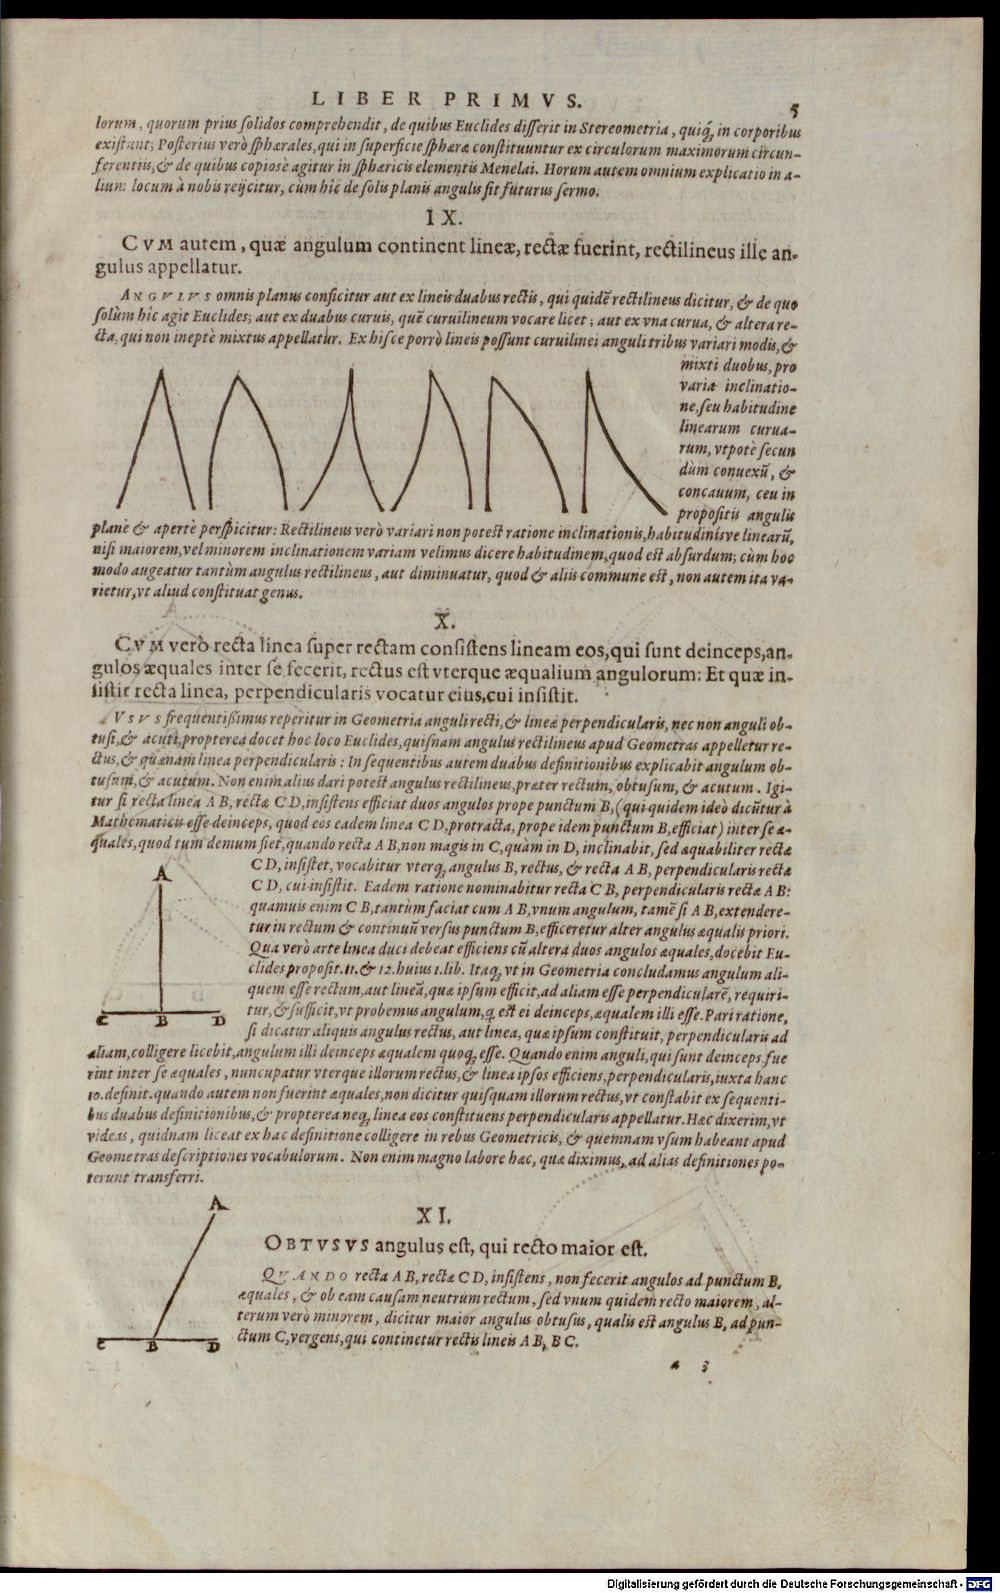 LIBER PRIMVS. 5
lorum, quorum prius ſolidos comprehendit, de quibus Euclides diſſerit in Stereometria, quiq́, in corporibus
exiſtunt; Poſterius verò ſphærales, qui in ſuperficie ſphæræ conſtituuntur ex circulorum maximorum circun-
ferentiis, & de quibus copioſè agitur in ſphæricis elementis Menelai. Horum autem omnium explicatio in a-
lium locum à nobis reijcitur, cùm hîc de ſolis planis angulis ſit futurus ſermo.
IX.
CVM autem, quæ angulum continent lineæ, rectæ fuerint, rectilineus ille an-
gulus appellatur.
ANGVLVS omnis planus conficitur aut ex lineis duabus rectis, qui quidē rectilineus dicitur, & de quo
ſolùm hîc agit Euclides; aut ex duabus curuis, quē curuilineum vocare licet; aut ex vna curua, & altera re-
cta, qui non ineptè mixtus appellatur. Ex hiſce porrò lineis poſſunt curuilinei anguli tribus variari modis, &
mixti duobus, pro
varia inclinatio-
ne, ſeu habitudine
linearum curua-
rum, vtpotè ſecun
dùm conuexū, &
concauum, ceu in
propoſitis angulis
planè & apertè perſpicitur: Rectilineus verò variari non poteſt ratione inclinationis, habitudinisve linearū,
niſi maiorem, vel minorem inclinationem variam velimus dicere habitudinem, quod eſt abſurdum; cùm hoc
modo augeatur tantùm angulus rectilineus, aut diminuatur, quod & aliis commune eſt, non autem ita va-
rietur, vt aliud conſtituat genus.
X.
CVM verò recta linea ſuper rectam conſiſtens lineam eos, qui ſunt deinceps, an-
gulos æquales inter ſe fecerit, rectus eſt vterque æqualium angulorum: Et quæ in-
ſiſtit recta linea, perpendicularis vocatur eius, cui inſiſtit.
VSVS frequentißimus reperitur in Geometria anguli recti, & lineæ perpendicularis, nec non anguli ob-
tuſi, & acuti, propterea docet hoc loco Euclides, quiſnam angulus rectilineus apud Geometras appelletur re-
ctus, & quænam linea perpendicularis: In ſequentibus autem duabus definitionibus explicabit angulum ob-
tuſum, & acutum. Non enim alius dari poteſt angulus rectilineus, præter rectum, obtuſum, & acutum. Igi-
tur ſi recta linea A B, rectæ C D, inſiſtens efficiat duos angulos prope punctum B, (qui quidem ideò dicūtur à
Mathematicis eſſe deinceps, quod eos eadem linea C D, protracta, prope idem punctum B, efficiat) inter ſe æ-
quales, quod tum demum fiet, quando recta A B, non magis in C, quàm in D, inclinabit, ſed æquabiliter rectæ
C D, inſiſtet, vocabitur vterq, angulus B, rectus, & recta A B, perpendicularis rectæ
C D, cui inſiſtit. Eadem ratione nominabitur recta C B, perpendicularis rectæ A B:
quamuis enim C B, tantùm faciat cum A B, vnum angulum, tamē ſi A B, extendere-
tur in rectum & continuū verſus punctum B, efficeretur alter angulus æqualis priori.
Qua verò arte linea duci debeat efficiens cū altera duos angulos æquales, docebit Eu-
clides propoſit. 11. & 12. huius 1. lib. Itaq, vt in Geometria concludamus angulum ali-
quem eſſe rectum, aut lineā, quæ ipſum efficit, ad aliam eſſe perpendicularē, requiri-
tur, & ſufficit, vt probemus angulum, q eſt ei deinceps, æqualem illi eſſe. Pari ratione,
ſi dicatur aliquis angulus rectus, aut linea, quæ ipſum conſtituit, perpendicularis ad
aliam, colligere licebit, angulum illi deinceps æqualem quoq, eſſe. Quando enim anguli, qui ſunt deinceps fue
rint inter ſe æquales, nuncupatur vterque illorum rectus, & linea ipſos efficiens, perpendicularis, iuxta hanc
10. definit. quando autem non fuerint æquales, non dicitur quiſquam illorum rectus, vt conſtabit ex ſequenti-
bus duabus definitionibus, & propterea neq, linea eos conſtituens perpendicularis appellatur. Hæc dixerim, vt
videas, quidnam liceat ex hac definitione colligere in rebus Geometricis, & quemnam vſum habeant apud
Geometras deſcriptiones vocabulorum. Non enim magno labore hæc, quæ diximus, ad alias definitiones po-
terunt transferri.
A
C B D
XI.
OBTVSVS angulus eſt, qui recto maior eſt.
QVANDO recta A B, rectæ C D, inſiſtens, non fecerit angulos ad punctum B,
æquales, & ob eam cauſam neutrum rectum, ſed vnum quidem recto maiorem, al-
terum verò minorem, dicitur maior angulus obtuſus, qualis eſt angulus B, ad pun-
ctum C, vergens, qui continetur rectis lineis A B, B C.
A
C B D
a 3
Digitalisierung gefördert durch die Deutsche Forschungsgemeinschaft - DFG